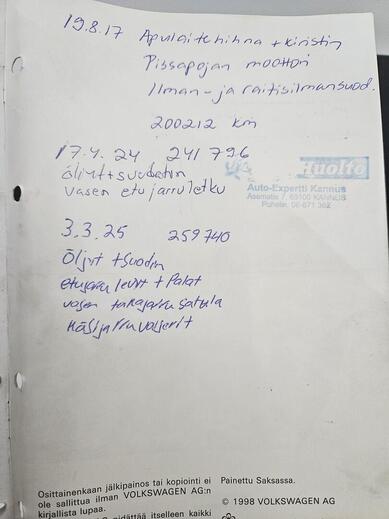 19.8.17 Apulaitehihna + kiristin
Pissapojan moottori
Ilman- ja raitisilmansuod.
200212 km
17.4.24 241 796
öljyt+suodatin
vasen etujarruletku
Huolto
Auto-Expertti Kannus
Asematie 7, 69100 KANNUS
Puhelin 06-871 362
3.3.25 259740
Öljyt + suodin
etujarru levyt + Palat
vasen takajarru satula
Käsijarruvaijerit
Osittainenkaan jälkipainos tai kopiointi ei
ole sallittua ilman VOLKSWAGEN AG:n
kirjallista lupaa.
pidättää itselleen kaikki
Painettu Saksassa.
© 1998 VOLKSWAGEN AG